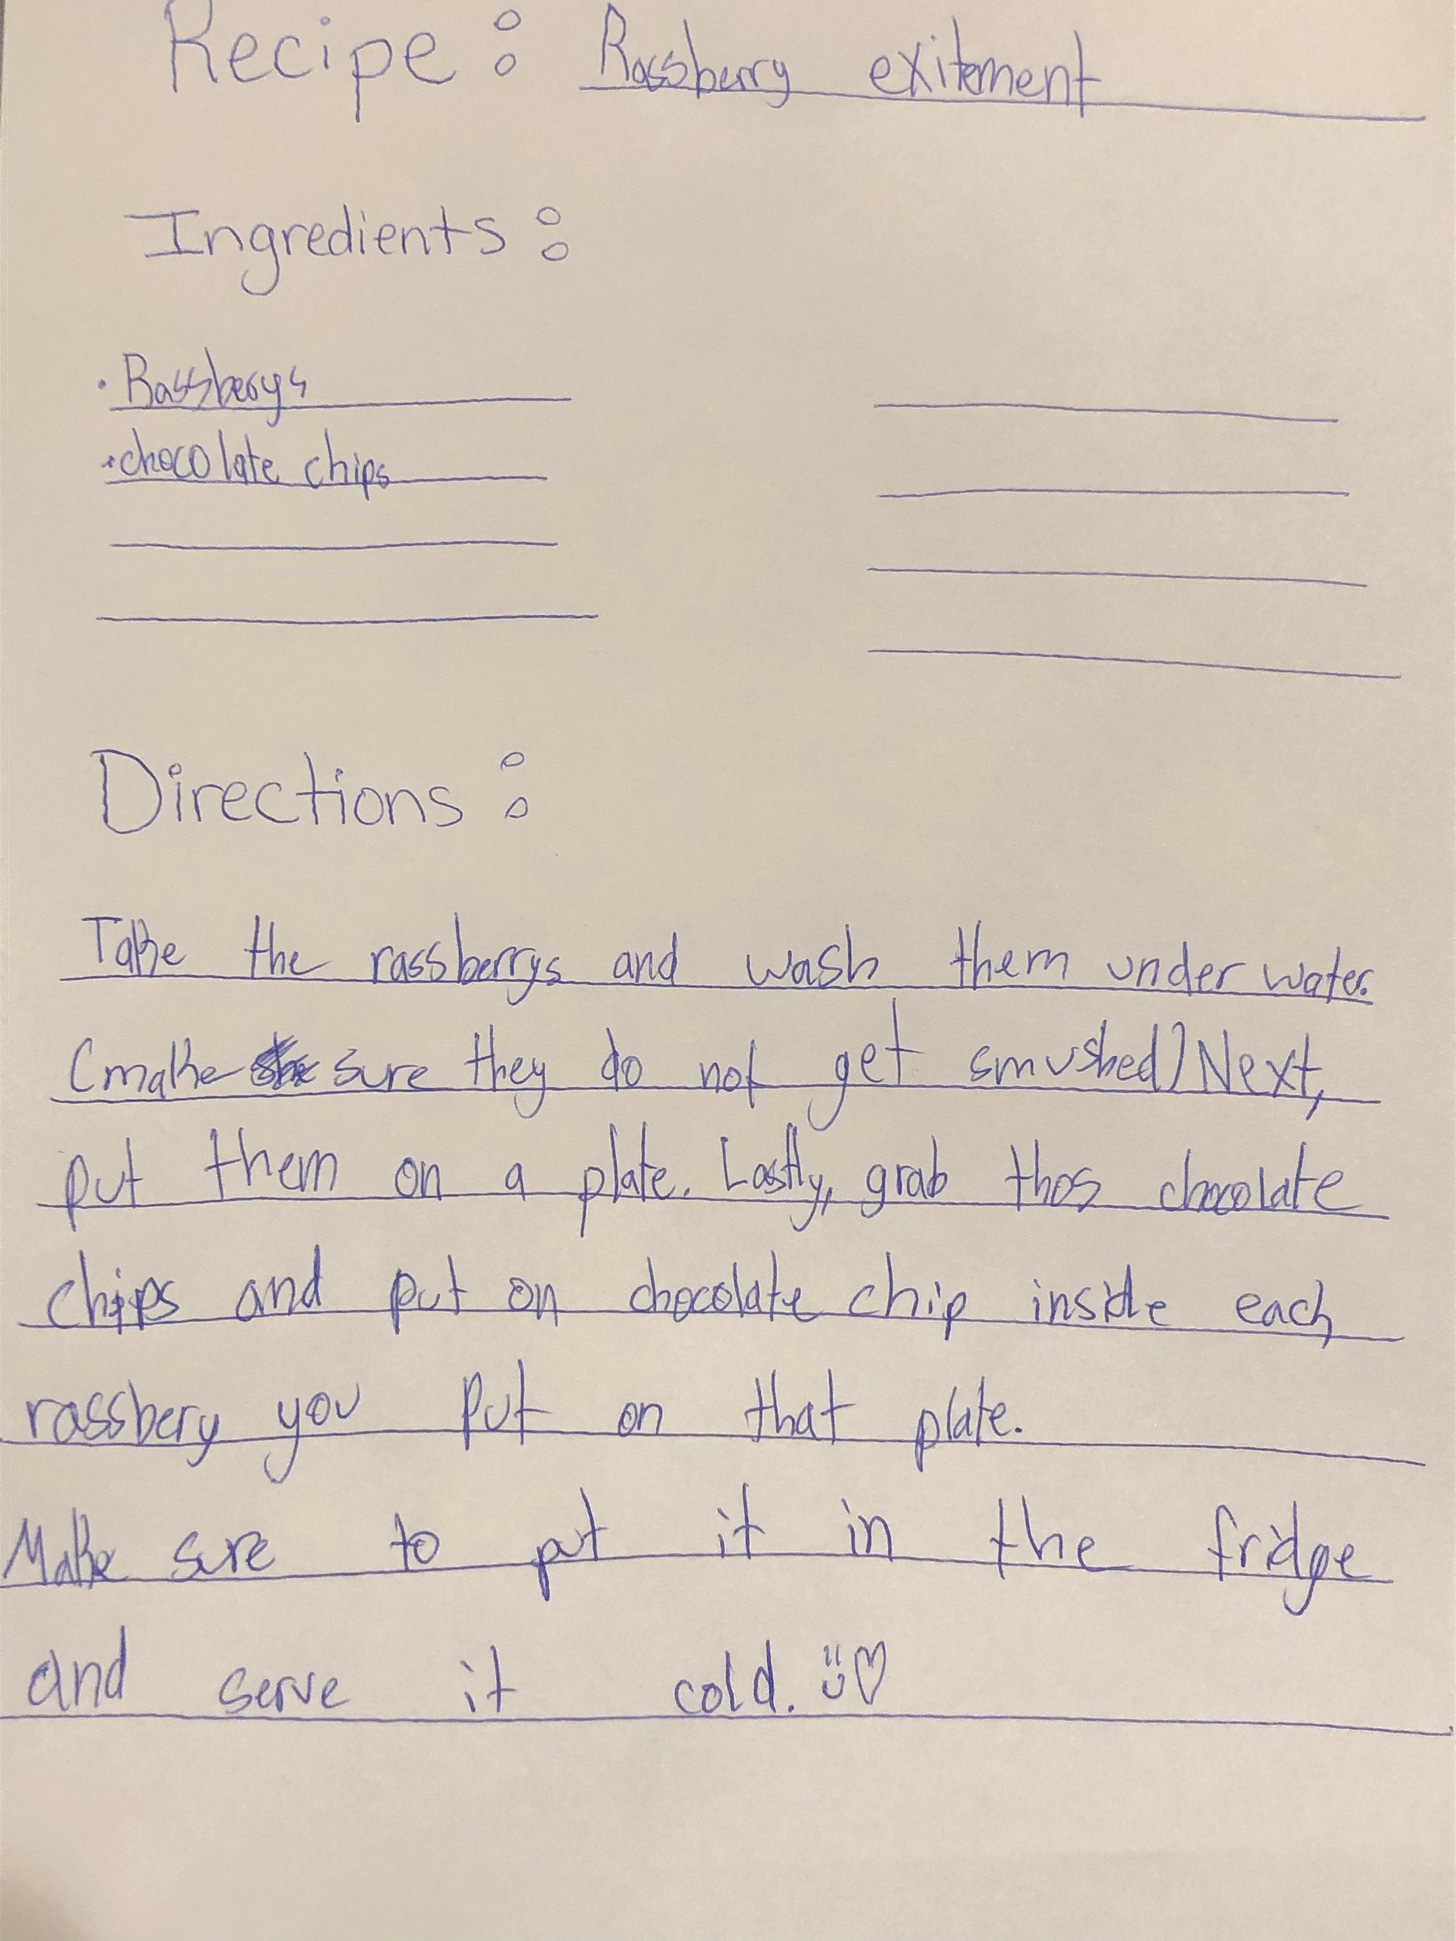 Recipe: Rassberry exitement
Ingredients:
· Rassberys
· chocolate chips
Directions:
Take the rassberrys and wash them under water.
(make sure they do not get smushed) Next,
put them on a plate. Lastly, grab thos chocolate
chips and put on chocolate chip inside each
rassbery you put on that plate.
Make sure to put it in the fridge
and serve it cold. ü♡